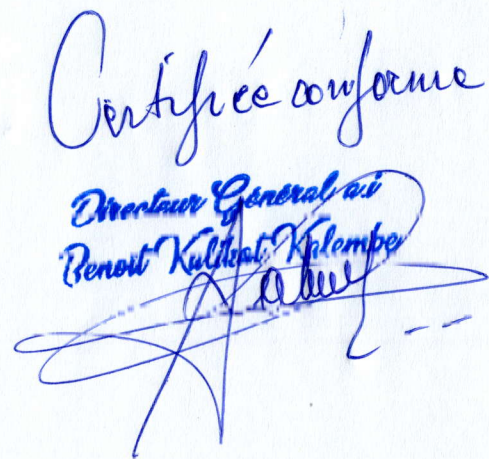 Certifiée conforme
Directeur Général a.i
Benoit Kulikat Kalembe